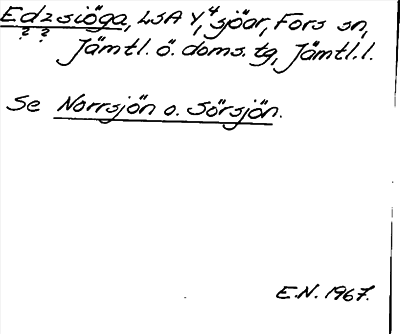 Edzsiöga, LSA Y,⁴ sjöar, Fors sn,
? ? Jämtl. ö. doms. tg, Jämtl. l.
Se Norrsjön o. Sörsjön.
E.N. 1967.